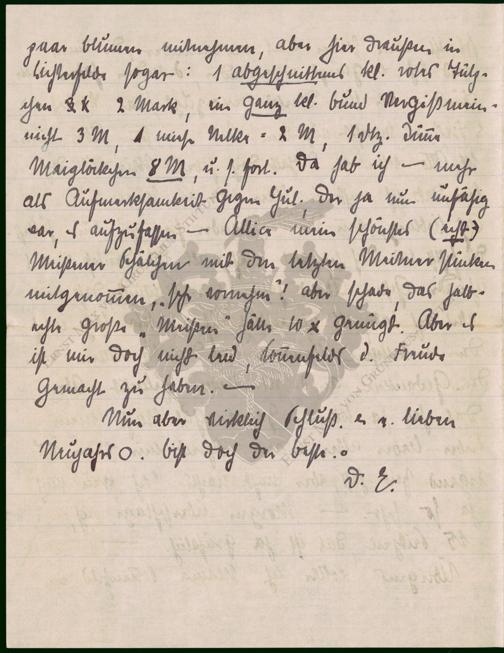 paar blumen mitnehmen, aber hier draußen in
Lichterfelde sogar: 1 abgeschnittenes kl. rotes Tülp-
chen 2 Mark, ein ganz kl. bund Vergißmein-
nicht 3 M, 1 Nelke = 2 M, 1 dtz. dünne
Maiglöckchen 8 M, u. s. fort. Da hab ich — mehr
als Aufmerksamkeit gegen Jul., der ja nun unfähig
war, es aufzufassen — Allice mein schönstes (echt)
Meißener Schälchen mit den letzten
mitgenommen, „sehr vornehm"! aber schade, das halb-
echte große „Meißen" hätte 10 x genügt. Aber es
ist mir doch nicht leid, Sonnenfelds d. Freude
gemacht zu haben. —
Nun aber wirklich Schluß. lieben
Neujahrs bist doch der beste.
D. E.